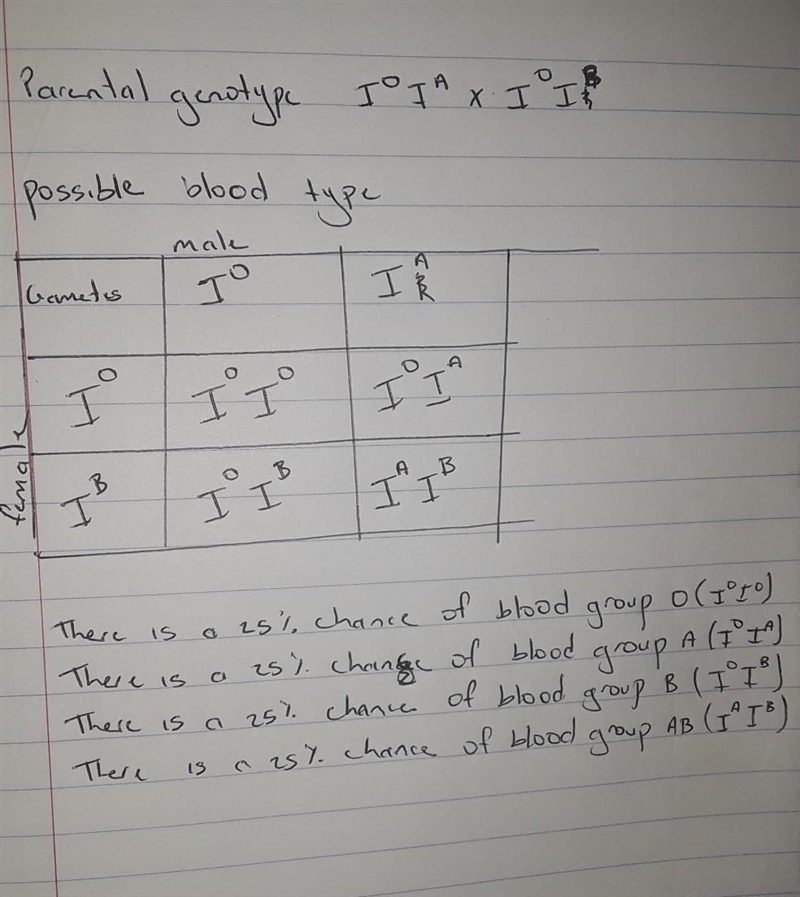 Parental genotype I^O I^A x I^O I^B
possible blood type
male
Gametes I^O I^A
female
I^O I^O I^O I^O I^A
I^B I^O I^B I^A I^B
There is a 25% chance of blood group O (I^O I^O)
There is a 25% chance of blood group A (I^O I^A)
There is a 25% chance of blood group B (I^O I^B)
There is a 25% chance of blood group AB (I^A I^B)